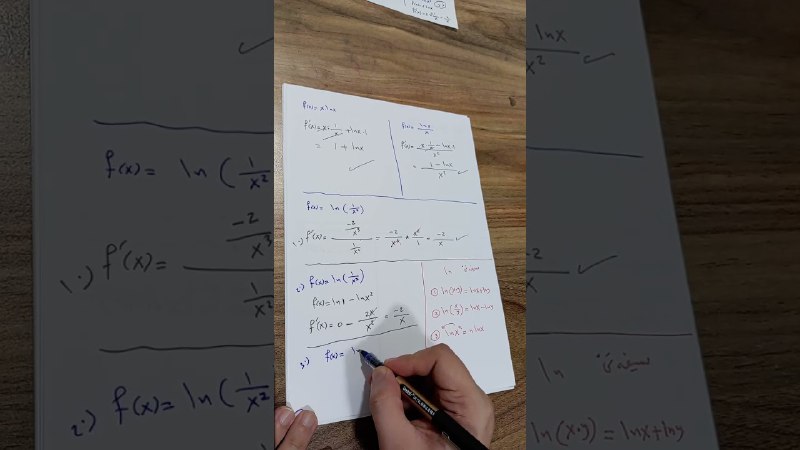 f(x) = x lnx
f'(x) = x · 1/x + lnx · 1
= 1 + lnx
f(x) = lnx/x
= (1 - lnx)/x²
f(x) = ln (1/x²)
1.) f'(x) = (-2/x³)/(1/x²) = -2/x³ * x²/1 = -2/x
2.) f(x) = ln (1/x²)
f(x) = ln1 - lnx²
f'(x) = 0 - 2x/x² = -2/x
3.) f(x) = ln
ln
① ln(x·y) = lnx + lny
② ln(x/y) = lnx - lny
③ "lnxⁿ" = n lnx
lnx
x²
f(x) = ln (1/x²)
1.) f'(x) = -2/x³
2.) f(x) = ln (1/x²
ln
ln(x·y) = lnx + lny